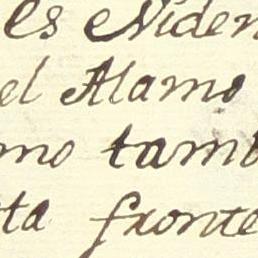 es eviden
el Alamo
mo tamb
ta fronte